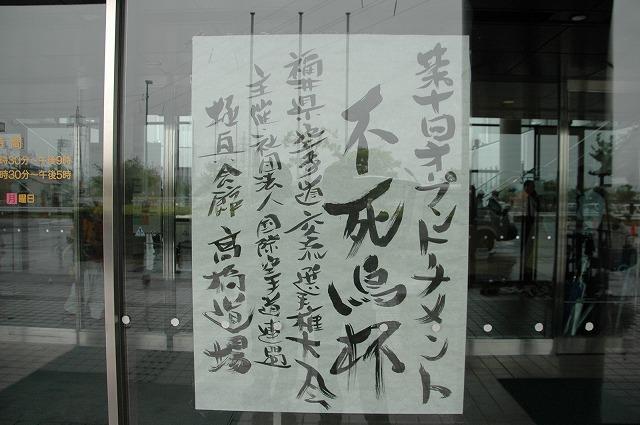 第十回オープントーナメント
不死鳥杯
福井県空手道交流選手権大会
主催 社団法人 国際空手道連盟
極真会館 高橋道場
時30分～午後9時
時30分～午後5時
月曜日